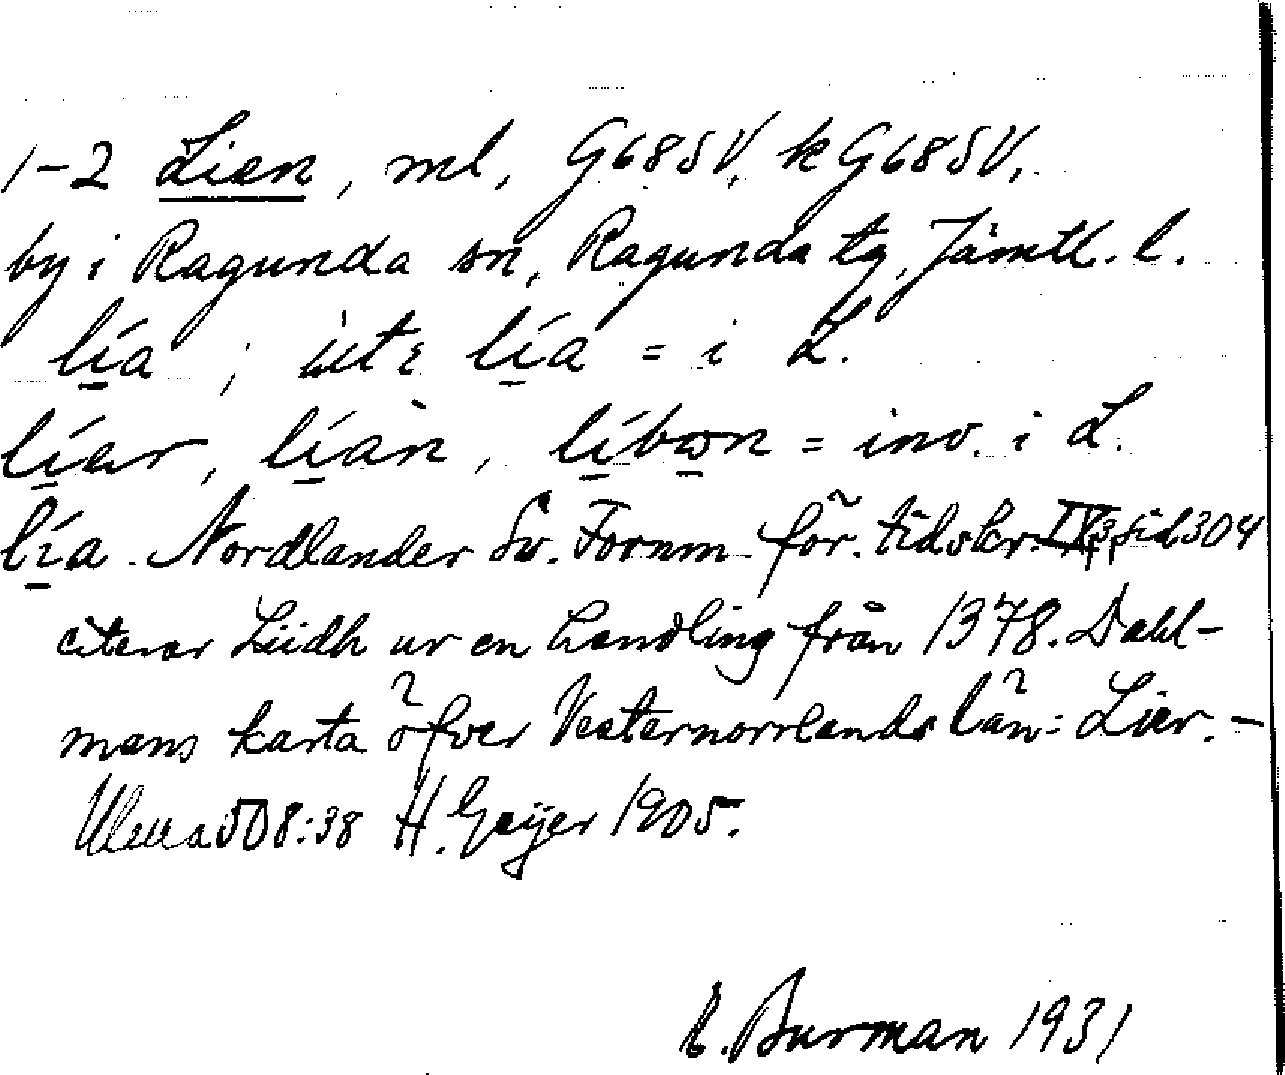 1-2 Lien, ml, G68SV, k G68SV,
by i Ragunda sn, Ragunda tg, Jämtl. l.
lía ; ùtɛ lía = i L.
líar, líàn, líbωn = inv. i L.
lía. Nordlander Sv. Fornm. för. tidskr. IX, 3, sid 304
citerar Liidh ur en handling från 1378. Dahl-
mans karta öfver Vesternorrlands län: Lier. -
Ulma 508:38 H. Geijer 1905.
E. Burman 1931